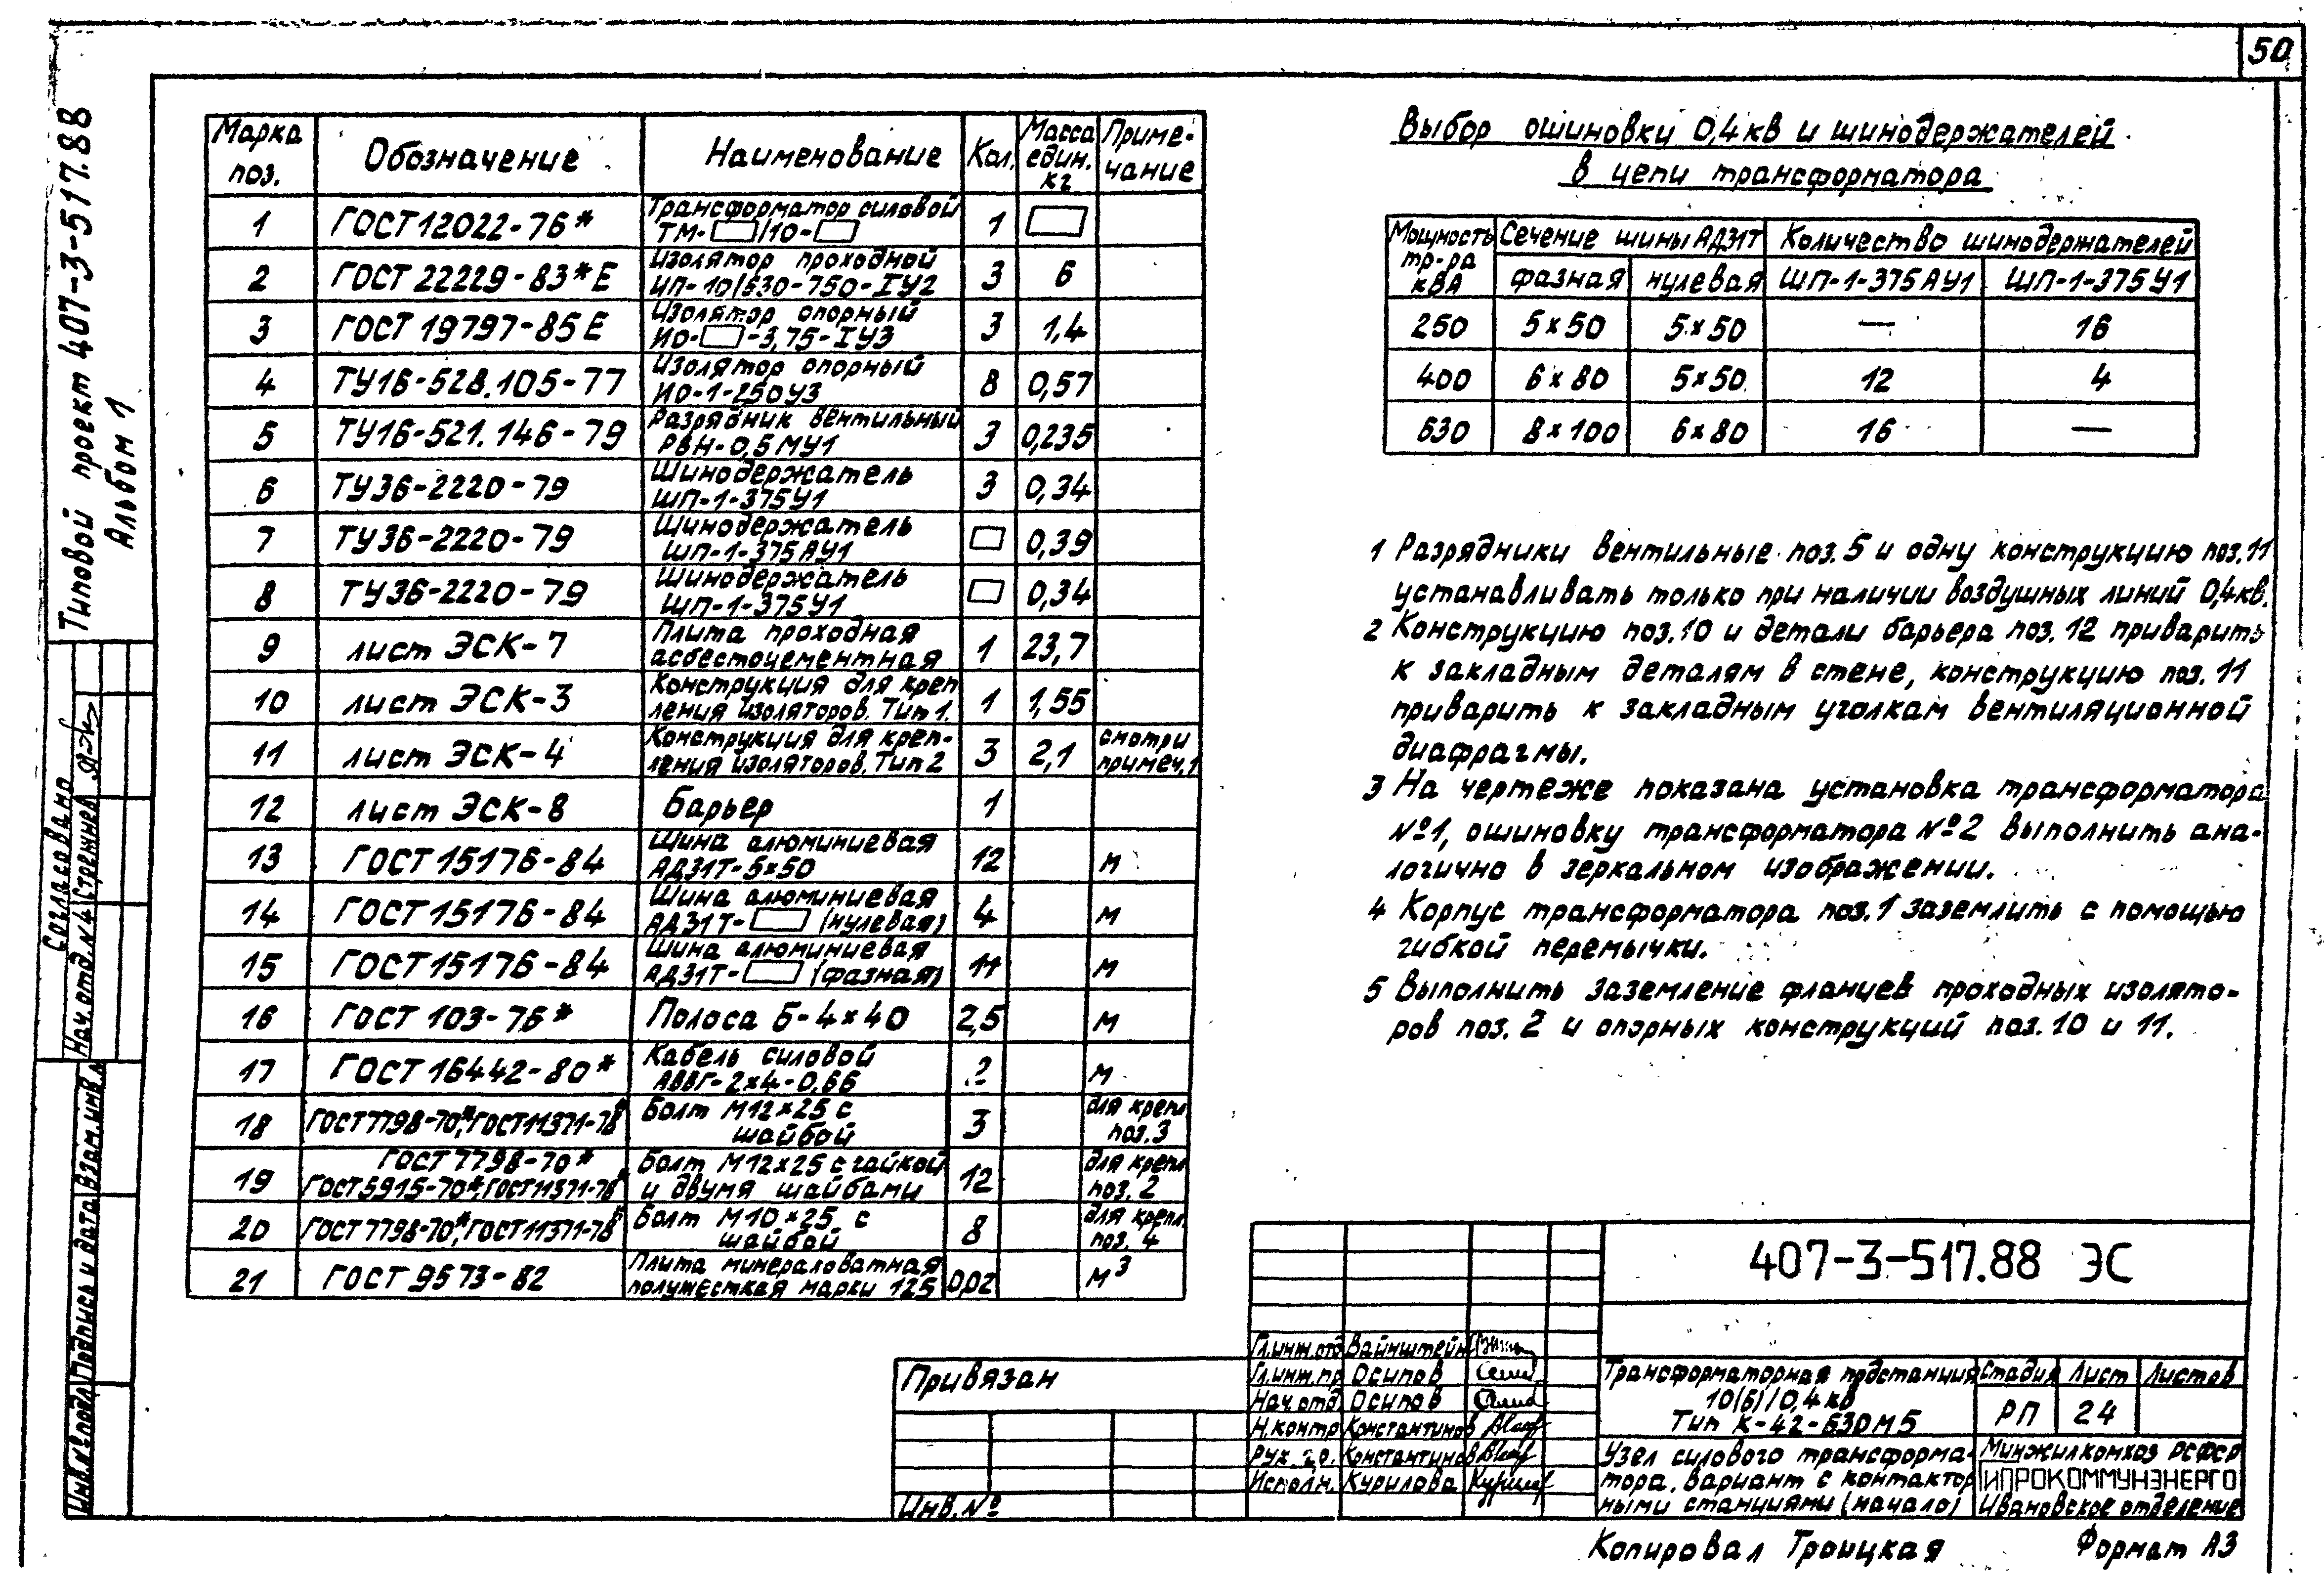 50
Типовой проект 407-3-517.88
Альбом 1
Марка поз. Обозначение Наименование Кол. Масса един. кг Приме-чание
1 ГОСТ 12022-76* Трансформатор силовой ТМ-□/10-□ 1 □
2 ГОСТ 22229-83*Е Изолятор проходной ИП-10/630-750-IУ2 3 6
3 ГОСТ 19797-85Е Изолятор опорный ИО-□-3,75-IУ3 3 1,4
4 ТУ16-528.105-77 Изолятор опорный ИО-1-250У3 8 0,57
5 ТУ16-521.146-79 Разрядник вентильный РВН-0,5МУ1 3 0,235
6 ТУ36-2220-79 Шинодержатель ШП-1-375У1 3 0,34
7 ТУ36-2220-79 Шинодержатель ШП-1-375АУ1 □ 0,39
8 ТУ36-2220-79 Шинодержатель ШП-1-375У1 □ 0,34
9 лист ЭСК-7 Плита проходная асбестоцементная 1 23,7
10 лист ЭСК-3 Конструкция для креп ления изоляторов. Тип 1. 1 1,55
11 лист ЭСК-4 Конструкция для креп-ления изоляторов. Тип 2 3 2,1 смотри примеч.1
12 лист ЭСК-8 Барьер 1
13 ГОСТ 15176-84 Шина алюминиевая АД31Т-5×50 12 м
14 ГОСТ 15176-84 Шина алюминиевая АД31Т-□ (нулевая) 4 м
15 ГОСТ 15176-84 Шина алюминиевая АД31Т-□ (фазная) 11 м
16 ГОСТ 103-76* Полоса Б-4×40 2,5 м
17 ГОСТ 16442-80* Кабель силовой АВВГ-2×4-0,66 2 м
18 ГОСТ7798-70*,ГОСТ11371-78* Болт М12×25 с шайбой 3 для крепл. поз.3
19 ГОСТ 7798-70* ГОСТ5915-70*,ГОСТ11371-78* Болт М12×25 с гайкой и двумя шайбами 12 для крепл поз. 2
20 ГОСТ7798-70*,ГОСТ11371-78* Болт М10×25 с шайбой 8 для крепл. поз. 4
21 ГОСТ 9573-82 Плита минераловатная полужесткая марки 125 0,02 м³
Выбор ошиновки 0,4кв и шинодержателей
в цепи трансформатора
Мощность тр-ра кВА Сечение шины АД31Т Количество шинодержателей
фазная нулевая ШП-1-375АУ1 ШП-1-375У1
250 5×50 5×50 — 16
400 6×80 5×50 12 4
630 8×100 6×80 16 —
1 Разрядники вентильные поз.5 и одну конструкцию поз.11
устанавливать только при наличии воздушных линий 0,4кв.
2 Конструкцию поз.10 и детали барьера поз.12 приварить
к закладным деталям в стене, конструкцию поз.11
приварить к закладным уголкам вентиляционной
диафрагмы.
3 На чертеже показана установка трансформатора
№1, ошиновку трансформатора №2 выполнить ана-
логично в зеркальном изображении.
4 Корпус трансформатора поз.1 заземлить с помощью
гибкой перемычки.
5 Выполнить заземление фланцев проходных изолято-
ров поз. 2 и опорных конструкций поз.10 и 11.
Согласовано
Нач.отд.№4 Стрежнев
Взам.инв.№
Подпись и дата
Инв.№подл
Привязан
Инв.№
407-3-517.88 ЭС
Гл.инж.отд Вайнштейн
Гл.инж.пр Осипов
Нач.отд Осипов
Н.контр Константинов
Рук.гр. Константинов
Исполн. Курилова
Трансформаторная пдстанция
10(6)/0,4кв
Тип К-42-630М5
Стадия Лист Листов
РП 24
Узел силового трансформа-
тора. Вариант с контактор
ными станциями (начало)
Минжилкомхоз РСФСР
ГИПРОКОММУНЭНЕРГО
Ивановское отделение
Копировал Троицкая Формат А3